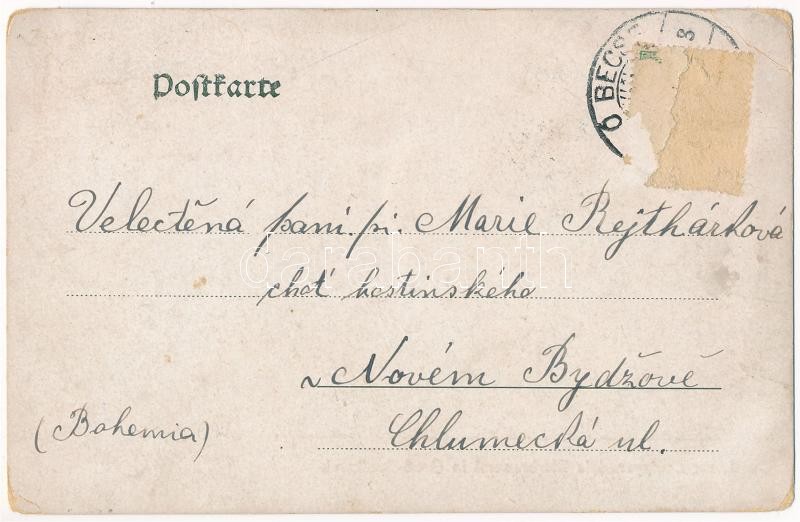 Postkarte
6 BÉCS
Velectěná paní, pí. Marie Rejthárková
choť hostinského
v Novém Bydžově
Chlumecká ul.
(Bohemia)
darabanth